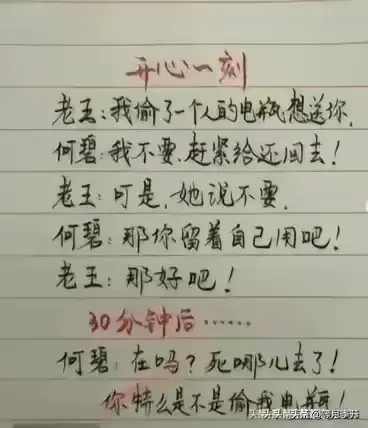 开心一刻
老王:我偷了一个人的电瓶想送你.
何碧:我不要.赶紧给还回去!
老王:可是.她说不要.
何碧:那你留着自己用吧!
老王:那好吧!
30分钟后……
何碧:在吗?死哪儿去了!
你特么是不是偷我电瓶!